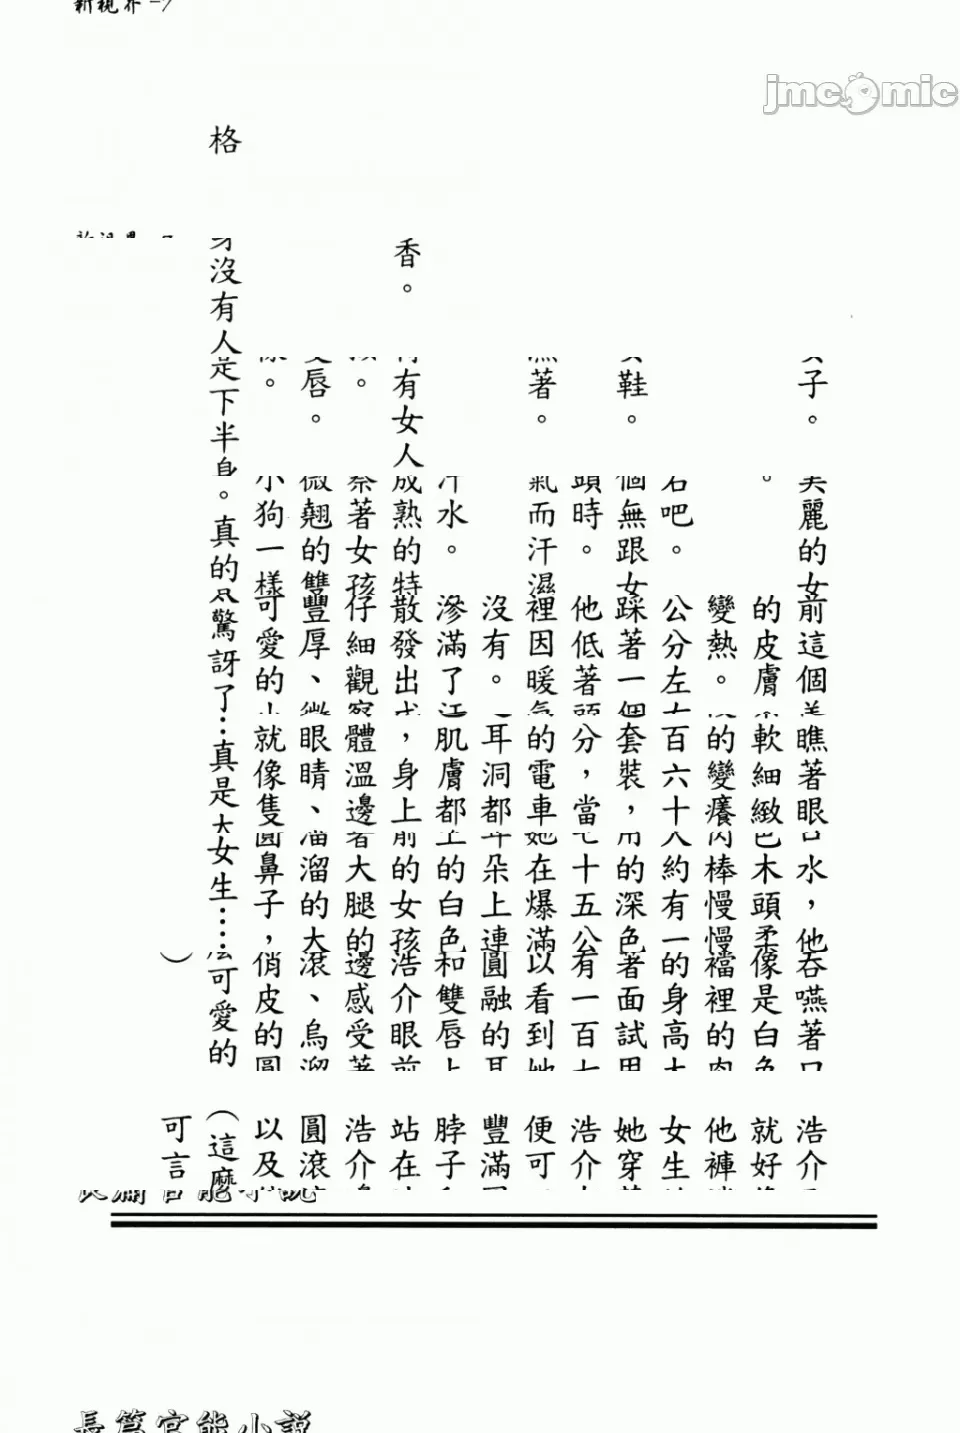 浩介吞嚥著口水，他瞧著眼前這個美麗的女子。
就好像是白色木頭柔軟細緻的皮膚。
他褲襠裡的肉棒慢慢的變癢變熱。
女生的身高大約有一百六十公分左右吧。
她穿著面試用的深色套裝，踩著一個無跟女鞋。
浩介有一百七十五公分，當他低著頭時。
便可以看到她在爆滿的電車裡因暖氣而汗濕著。
豐滿圓融的耳朵上連耳洞都沒有。
脖子和雙唇上的白色肌膚都滲滿了汗水。
站在浩介眼前的女孩，身上散發出成熟的特有女人香。
浩介邊感受著大腿的體溫邊仔細觀察著女孩。
圓滾滾、烏溜溜的大眼睛、豐厚、微翹的雙唇。
以及俏皮的圓鼻子，就像隻可愛的小狗一樣。
（這麼可愛的女生……真是驚訝了…。真的是下半身沒有人格
可言）
長篇官能小說
jmcomic